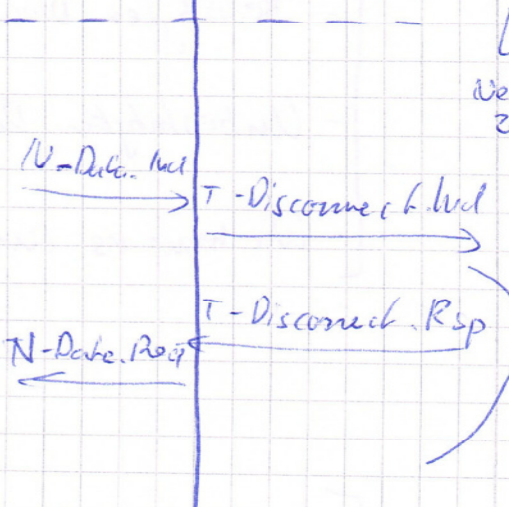 N-Data.Ind
T-Disconnect.Ind
T-Disconnect.Rsp
N-Data.Req